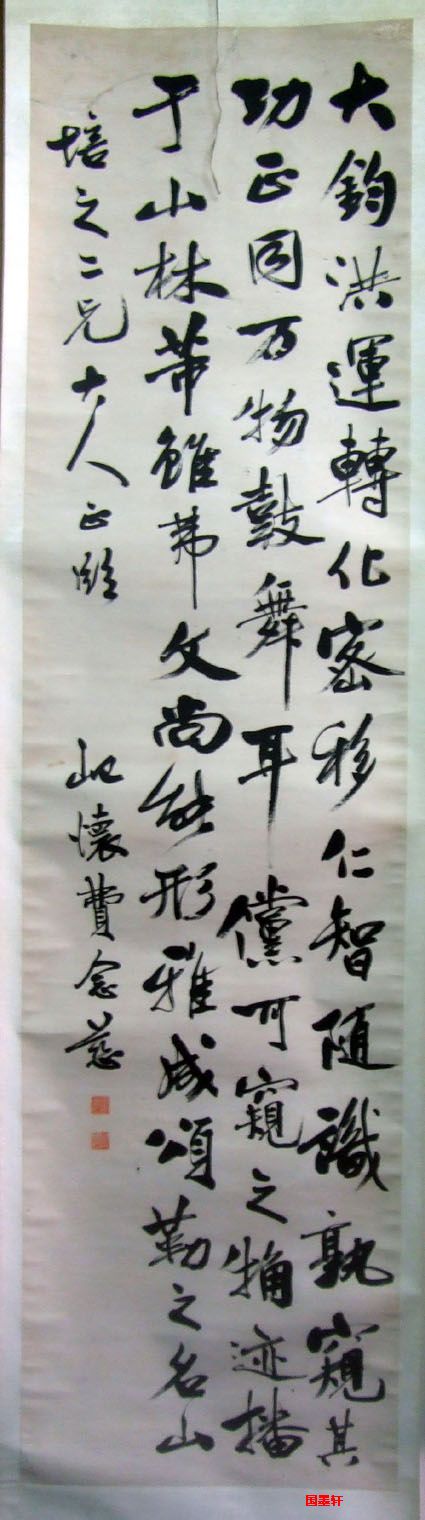 大鈞洪運轉化密移仁智随識孰窺其
功正同万物鼓舞耳儻可窺之牅迹播
于山林蒂雖弗文尚能形雅成頌勒之名山
培之二兄大人正
屺懷費念慈
国墨轩